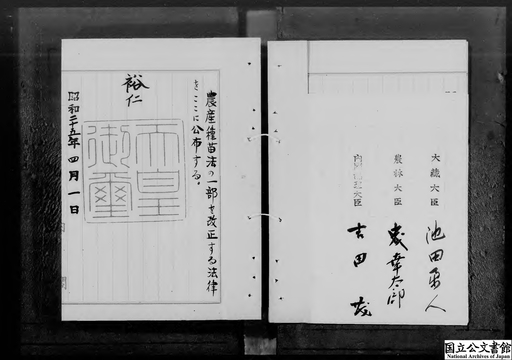 農産種苗法の一部を改正する法律
をここに公布する。
裕仁
天皇
御璽
昭和二十五年四月一日
内閣
大蔵大臣
池田勇人
農林大臣
森幸太郎
内閣総理大臣
吉田茂
国立公文書館
National Archives of Japan